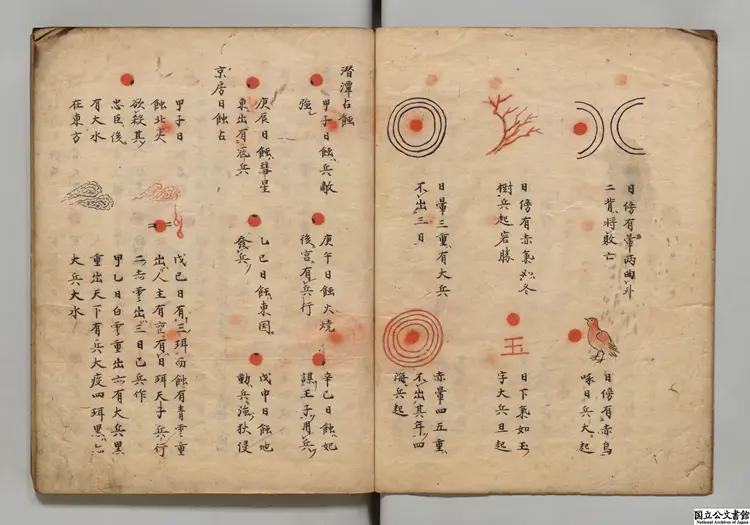 日傍有暈両曲外
二背将敗亡
日傍有赤氣如冬
樹兵起岩勝
日暈三重有大兵
不出三日
日傍有赤烏
啄日兵大起
玉
日下氣如玉
字大兵旦起
赤暈四五重
不出其年四
海兵起
潜潭占蝕
甲子日蝕兵敵
強
庚午日蝕火燒
後宮有兵行
辛巳日蝕妃
謀王子有兵
庚辰日蝕彗星
東出有寇兵
乙巳日蝕東国
發兵
戊申日蝕地
動兵強狄侵
京房日蝕占
甲子日
蝕北夷
欲殺其
忠臣後
有大水
在東方
戊巳日有三珥而蝕有青雲重
出人主有有白珥天子兵行
二赤雲出三日已兵作
甲乙日白雲重出六有大兵黒
重出天下有兵大疫四珥黒
大兵大水
国立公文書館
National Archives of Japan